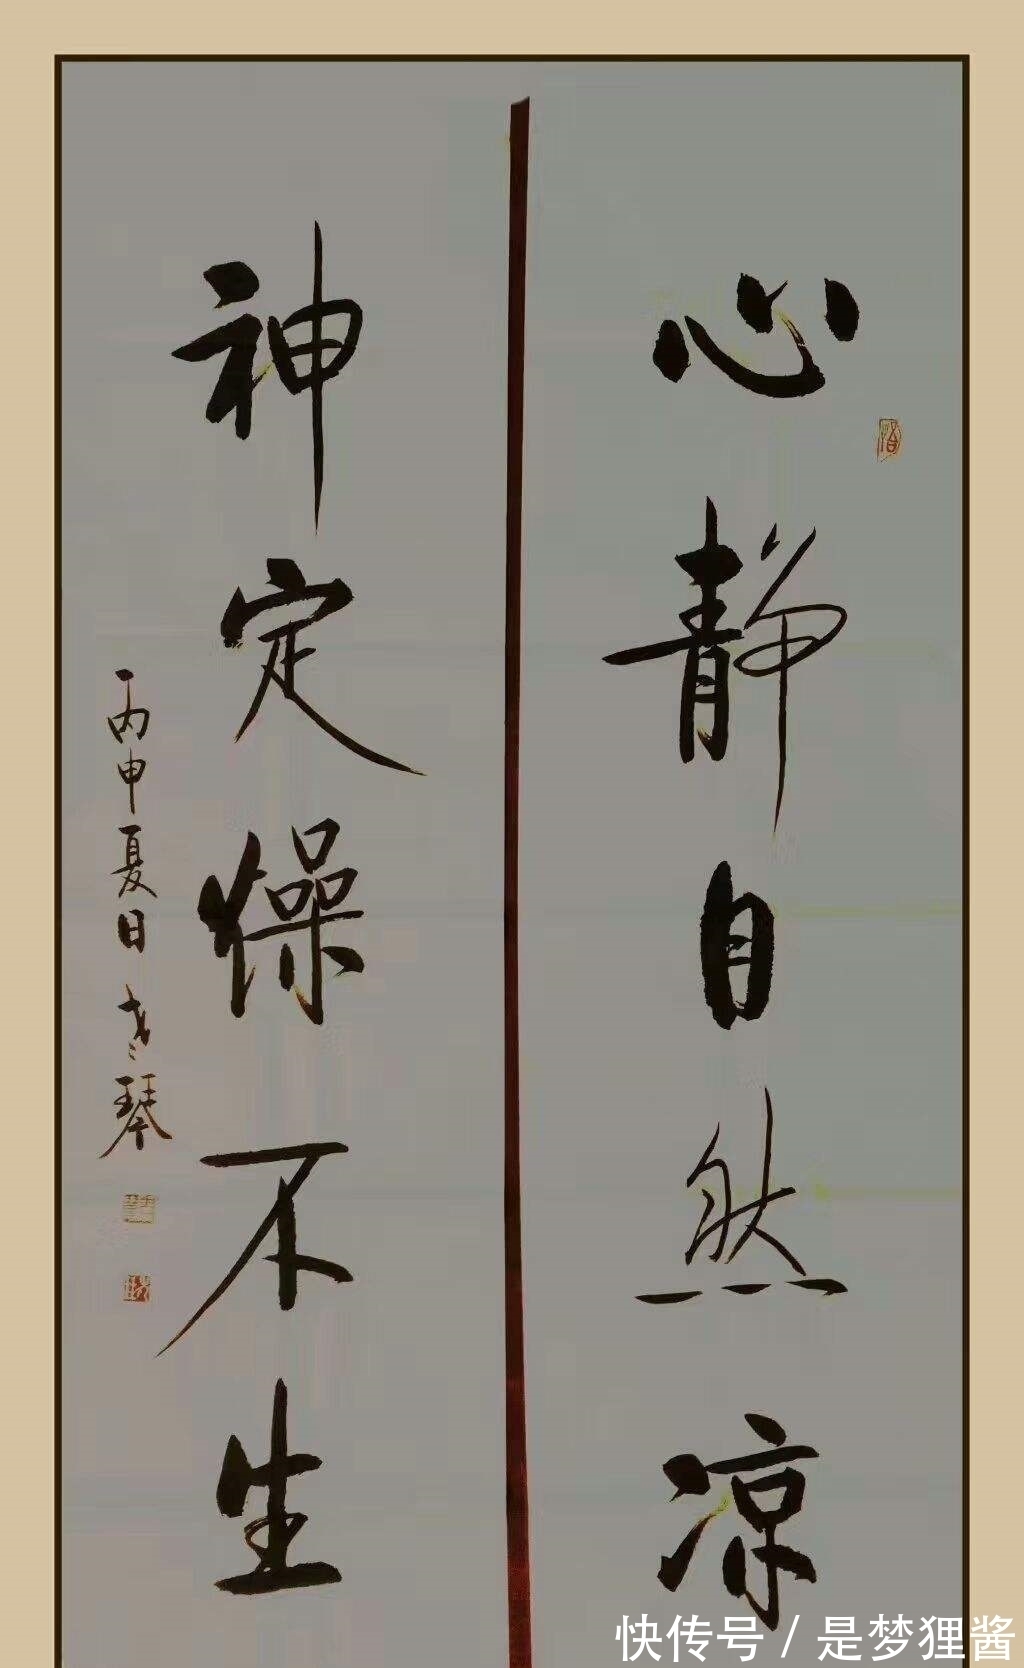 心静自然凉
神定燥不生
丙申夏日老琴
快传号 / 是梦狸酱